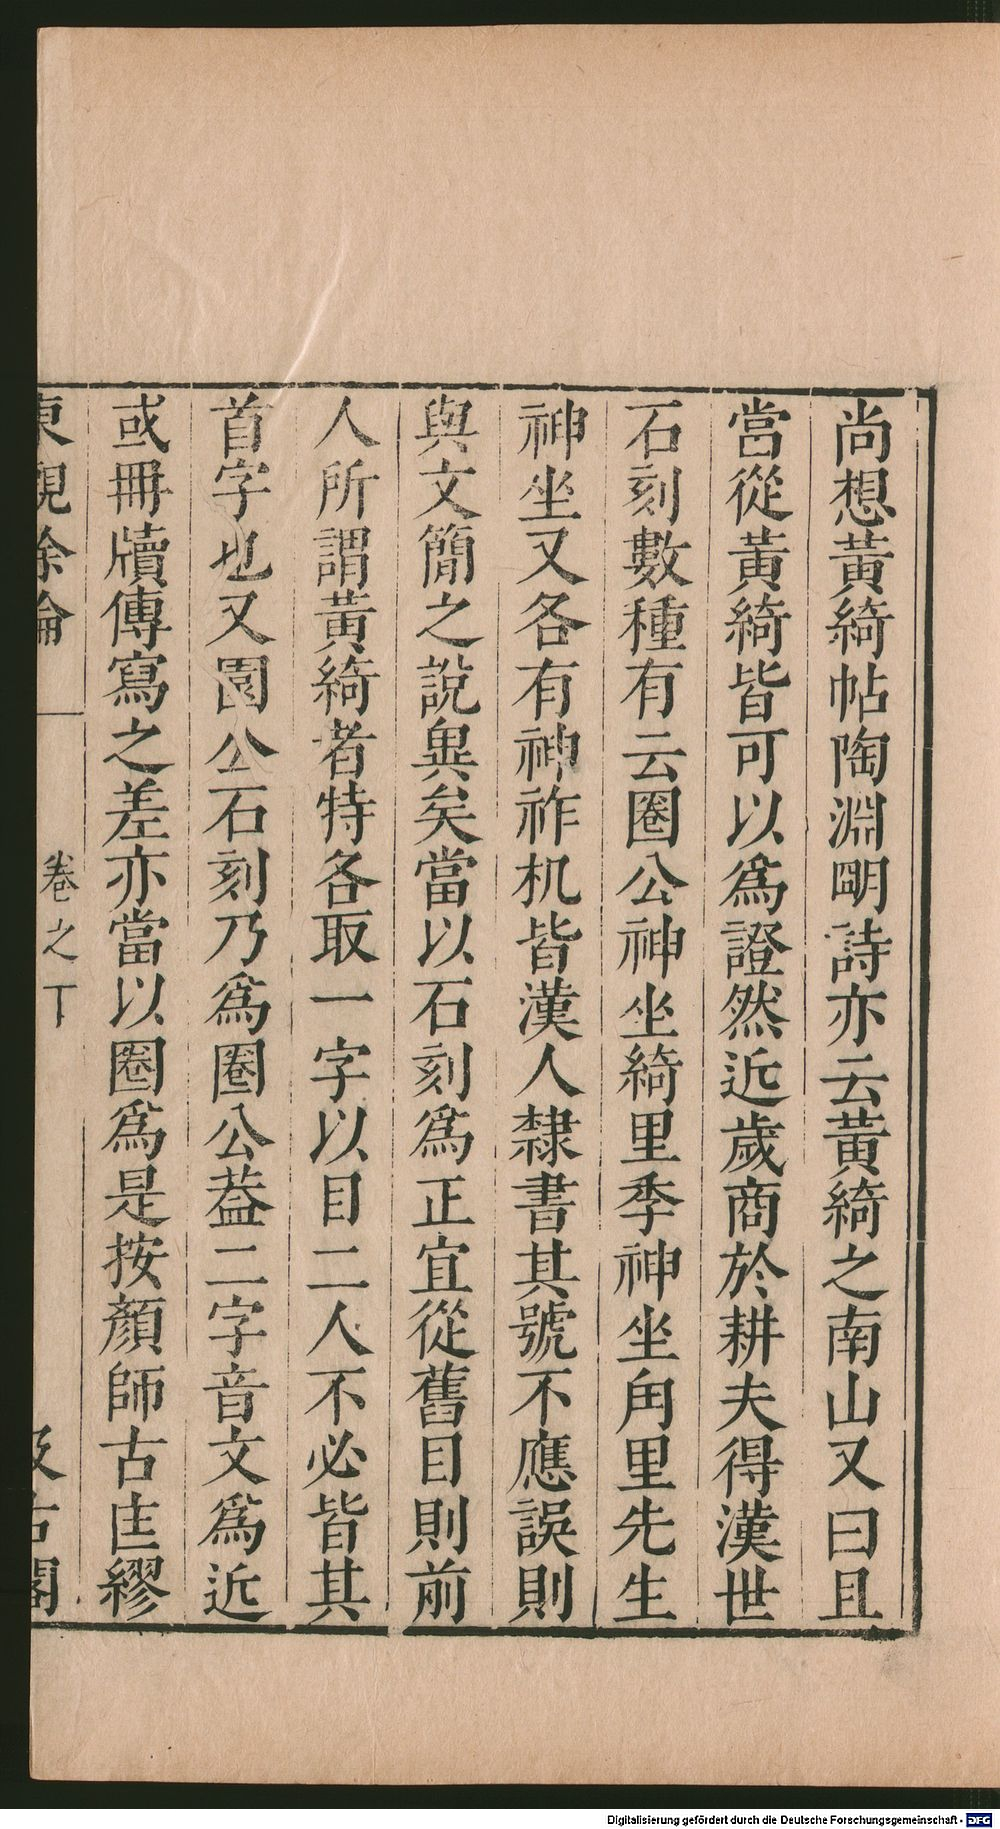 尚想黃綺帖陶淵明詩亦云黃綺之南山又曰且
當從黃綺皆可以為證然近歲商於耕夫得漢世
石刻數種有云圈公神坐綺里季神坐角里先生
神坐又各有神祚机皆漢人隸書其號不應誤則
與文簡之說異矣當以石刻為正宜從舊目則前
人所謂黃綺者特各取一字以目二人不必皆其
首字也又園公石刻乃為圈公葢二字音文為近
或冊牘傳寫之差亦當以圈為是按顏師古匡繆
東觀餘論
卷之下
汲古閣
Digitalisierung gefördert durch die Deutsche Forschungsgemeinschaft - DFG